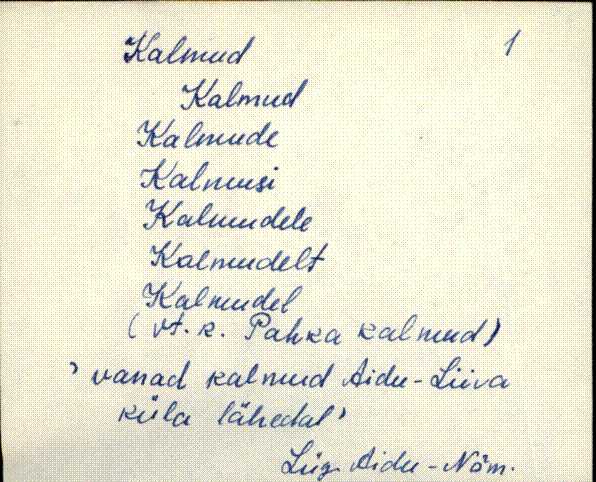 Kalmud 1
Kalmud
Kalmude
Kalmusi
Kalmudele
Kalmudelt
Kalmudel
(vt. k. Pahka kalmud)
'vanad kalmud Aidu-Liiva
küla lähedal'
Lüg Aidu-Nõm.